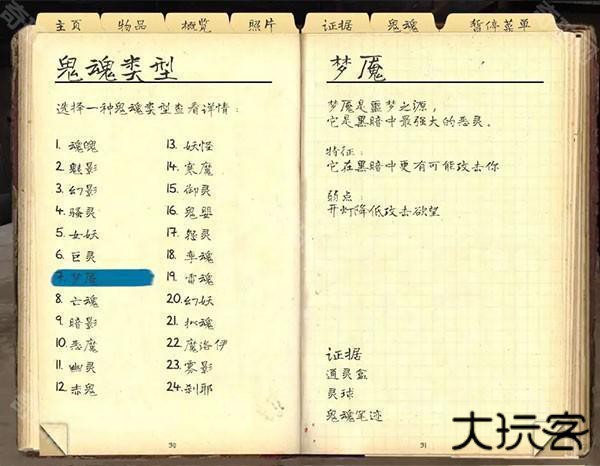 主页 物品 概览 照片 证据 鬼魂 暂停菜单
鬼魂类型
选择一种鬼魂类型查看详情：
1. 魂魄
2. 魅影
3. 幻影
4. 骚灵
5. 女妖
6. 巨灵
7. 梦魇
8. 亡魂
9. 暗影
10. 恶魔
11. 幽灵
12. 赤鬼
13. 妖怪
14. 寒魔
15. 御灵
16. 鬼婴
17. 怨灵
18. 孪魂
19. 雷魂
20. 幻妖
21. 拟魂
22. 魔洛伊
23. 雾影
24. 刹耶
30
梦魇
梦魇是噩梦之源，
它是黑暗中最强大的恶灵。
特征：
它在黑暗中更有可能攻击你
弱点：
开灯降低攻击欲望
证据
通灵盒
灵球
鬼魂笔迹
31
大玩客